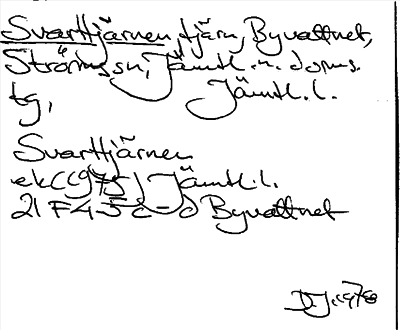 Svarttjärnen, tjärn, Byvattnet,
Ströms sn, Jämtl. n. doms.
tg, Jämtl. l.
Svarttjärnen
ek (1975) Jämtl. l.
21 F 4-5 c-d Byvattnet
D.J. 1978